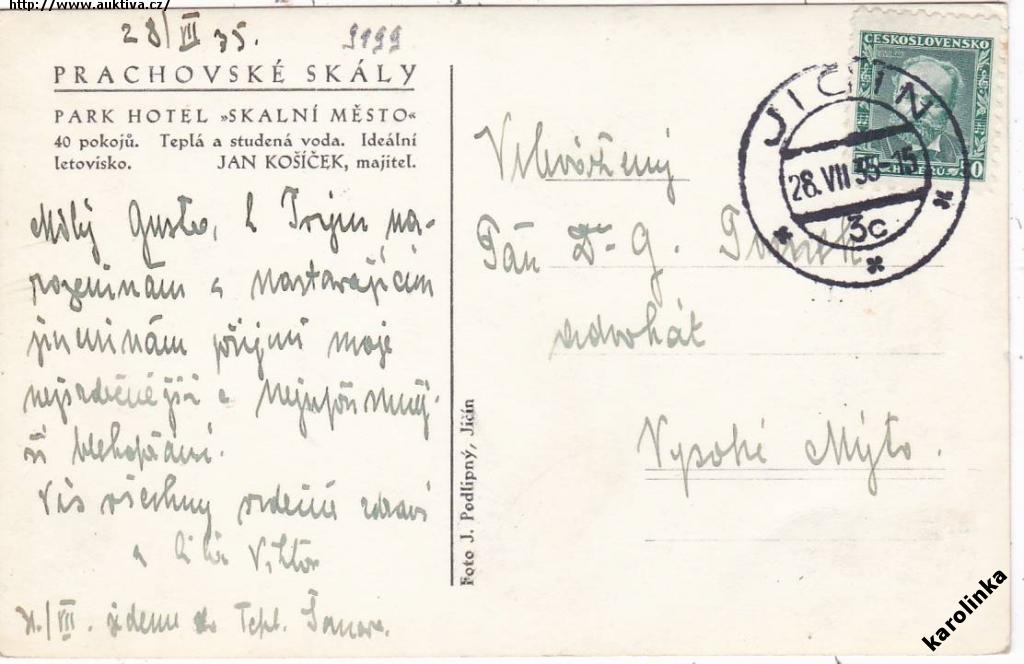 http://www.auktiva.cz/
28/VII 35.
9199
PRACHOVSKÉ SKÁLY
PARK HOTEL »SKALNÍ MĚSTO«
40 pokojů. Teplá a studená voda. Ideální
letovisko. JAN KOŠÍČEK, majitel.
Milý Gusto, k Tvým na-
rozeninám a nastávajícím
jmeninám přijmi moje
nejsrdečnější a nejupřímněj-
ší blahopřání.
Vás všechny srdečně zdraví
a líbá Viktor
/VII. jedeme do Tepl. Šanova.
Foto J. Podlipný, Jičín
ČESKOSLOVENSKO
50
JIČÍN
28. VII 35-15
3c
Velevážený
Pán Dr G.
advokát
Vysoké Mýto.
karolinka